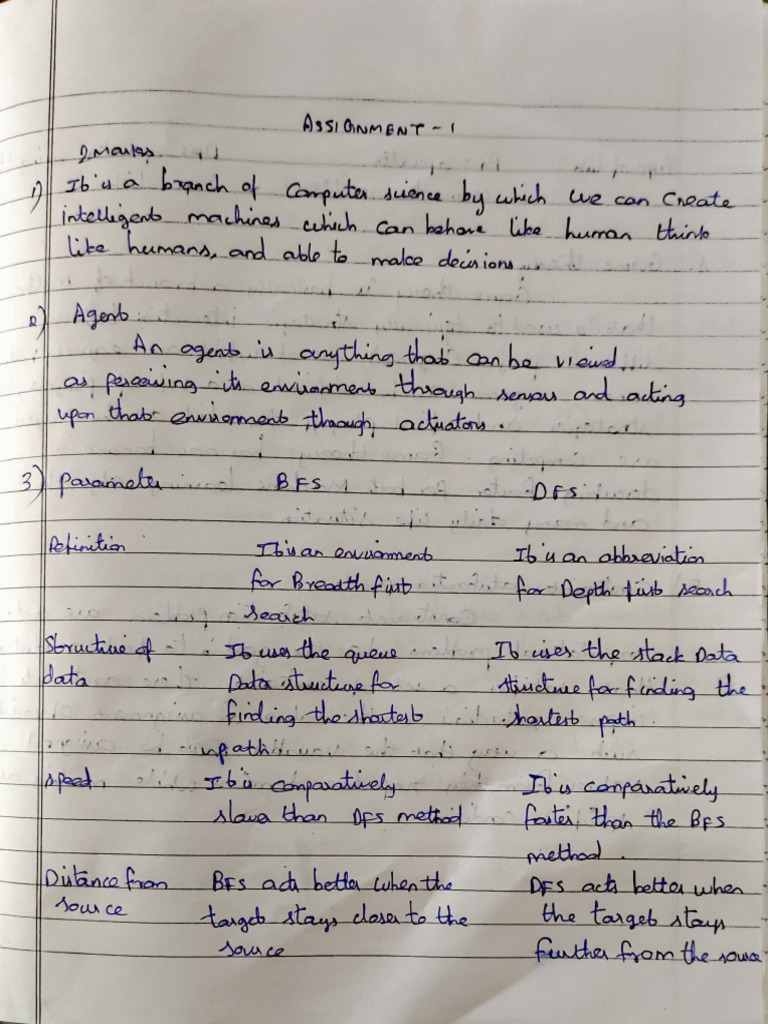 ASSIGNMENT - 1
2 Marks
1) It is a branch of Computer science by which we can create
intelligent machines which can behave like human think
like humans, and able to make decisions.
2) Agent
An agent is anything that can be viewed
as perceiving its environment through sensors and acting
upon that environment through actuators.
3) Parameter BFS DFS
Definition It is an environment It is an abbreviation
for Breadth first for Depth first search
search
Structure of It uses the queue It uses the stack Data
data Data structure for structure for finding the
finding the shortest shortest path
path
speed It is comparatively It is comparatively
slower than DFS method faster than the BFS
method.
Distance from BFS acts better when the DFS acts better when
source target stays closer to the the target stays
source further from the source